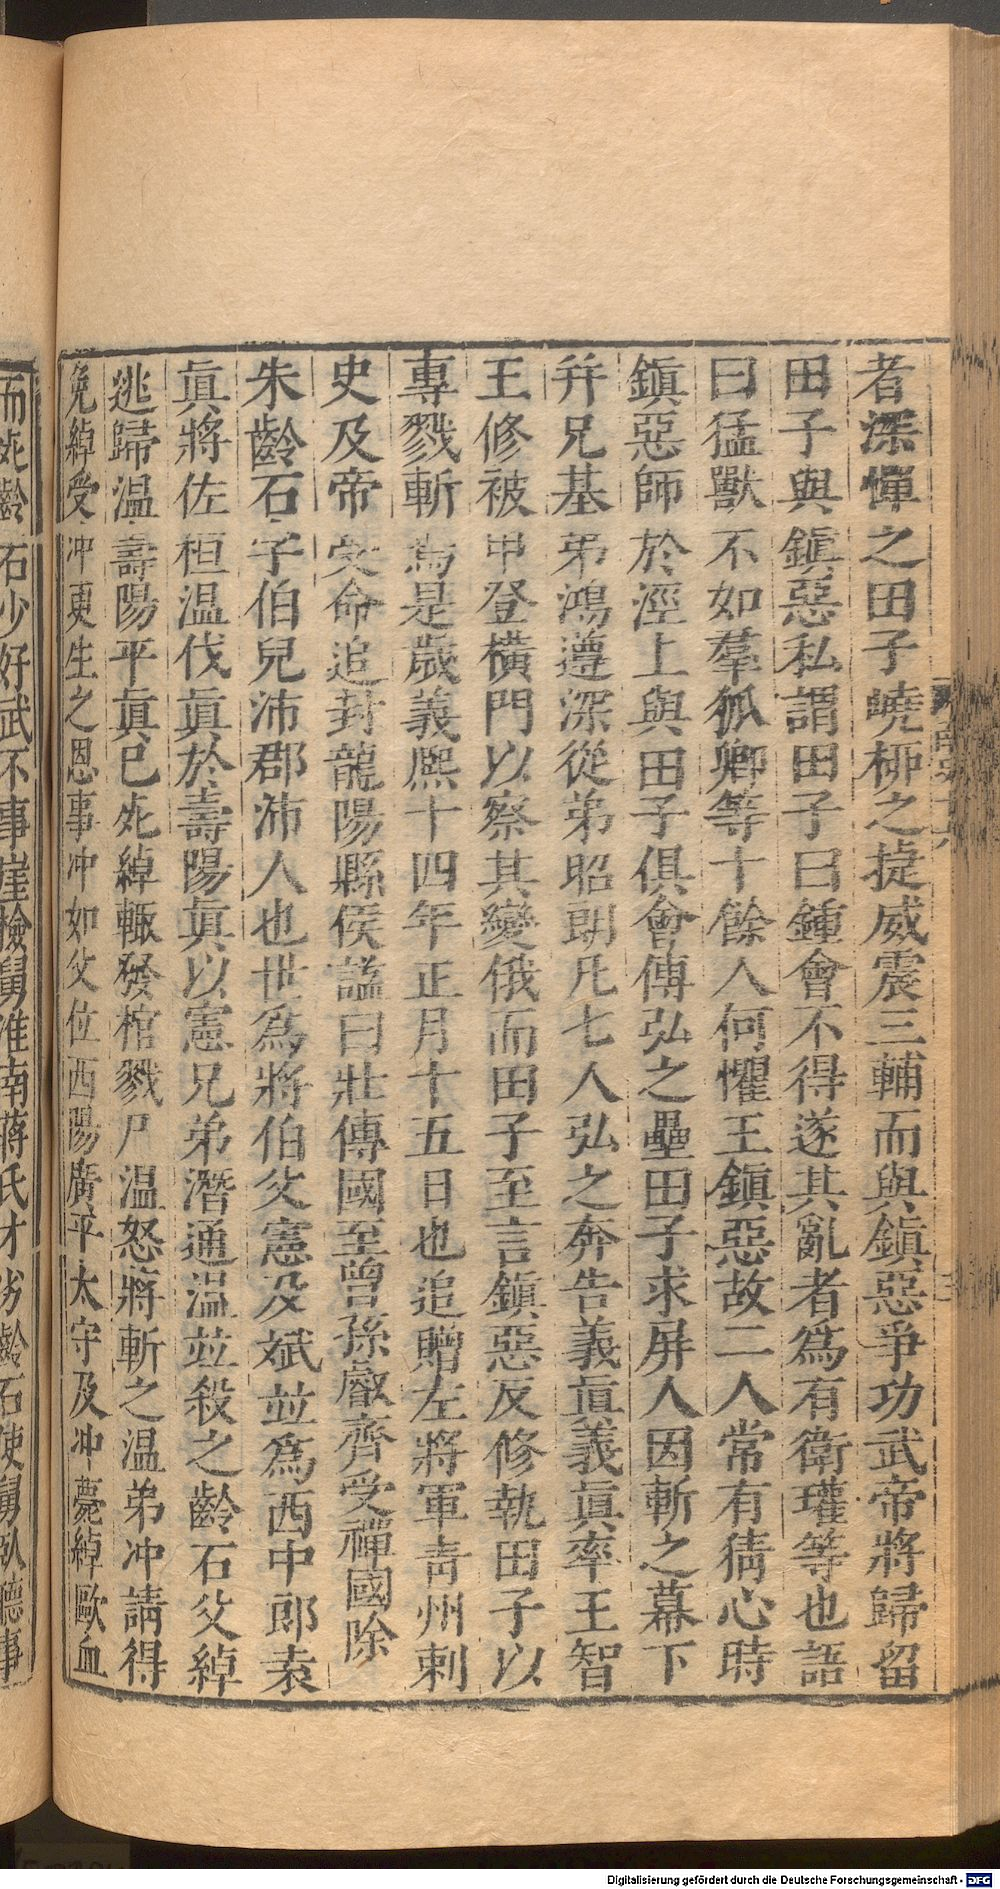 者深憚之田子嶢柳之捷威震三輔而與鎮惡爭功武帝將歸留
田子與鎮惡私謂田子曰鍾會不得遂其亂者爲有衛瓘等也語
曰猛獸不如羣狐卿等十餘人何懼王鎮惡故二人常有猜心時
鎮惡師於涇上與田子俱會傳弘之壘田子求屏人因斬之幕下
并兄基弟鴻遵深從弟昭朗凡七人弘之奔告義眞義眞率王智
王修被甲登橫門以察其變俄而田子至言鎮惡反修執田子以
專戮斬焉是歲義熈十四年正月十五日也追贈左將軍青州刺
史及帝受命追封龍陽縣侯謚曰壯傳國至曾孫叡齊受禪國除
朱齡石字伯兒沛郡沛人也世爲將伯父憲及斌並爲西中郎袁
眞將佐桓温伐眞於壽陽眞以憲兄弟潛通温並殺之齡石父綽
逃歸温壽陽平眞已死綽輙發棺戮尸温怒將斬之温弟冲請得
免綽受冲更生之恩事冲如父位西陽廣平太守及冲薨綽歐血
而死齡石少好武不事崖檢舅淮南蔣氏才劣齡石使舅臥聽事
南史十六
Digitalisierung gefördert durch die Deutsche Forschungsgemeinschaft - DFG